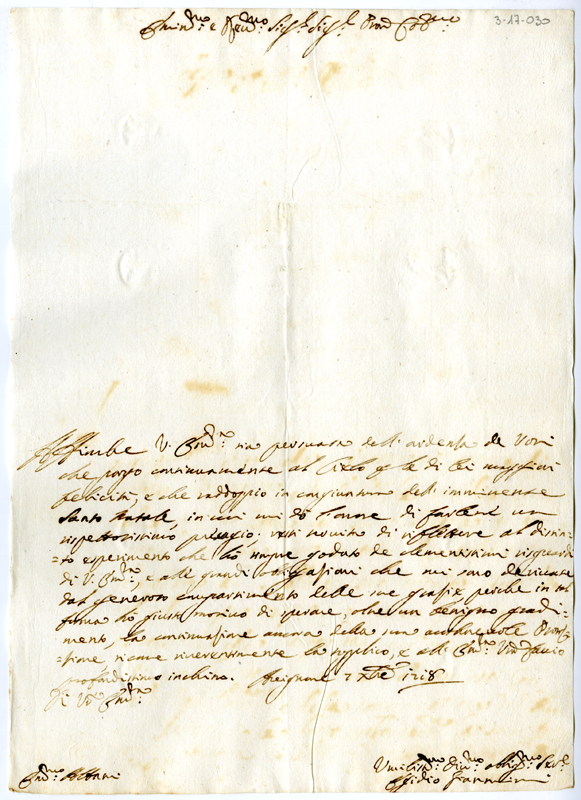 3-17-030
Emin.mo e Rev.mo Sig.r Sig.r Pron Co.mo
Affinche V. Em.za sia persuasa dell'ardenza de Voti
che porgo continuamente al Cielo p le di lei maggiori
felicità, e che raddoppio in congiuntura dell'imminente
Santo Natale, in cui mi dò l'onore di farlene un
rispettosissimo presagio; resti servito di riflettere al distin-
to esperimento che hò sempre goduto de clementissimi riguardi
di V. Em.za, e alle grandi obligazioni che mi sono derivate
dal generoso compartimento delle sue grazie, perche in tal
forma hò giusto motivo di sperare, oltre un benigno gradi-
mento, la continuazione ancora della sua autorevole Protez-
zione, sicome riverentemente la supplico, e all' Em.za V.ra faccio
profondissimo inchino. Avignone 7 Xbre 1718
Di V.ra Em.za
Em.mo Albani
Umiliss.mo Div.mo obblig.mo Ser.e
Egidio Giannini